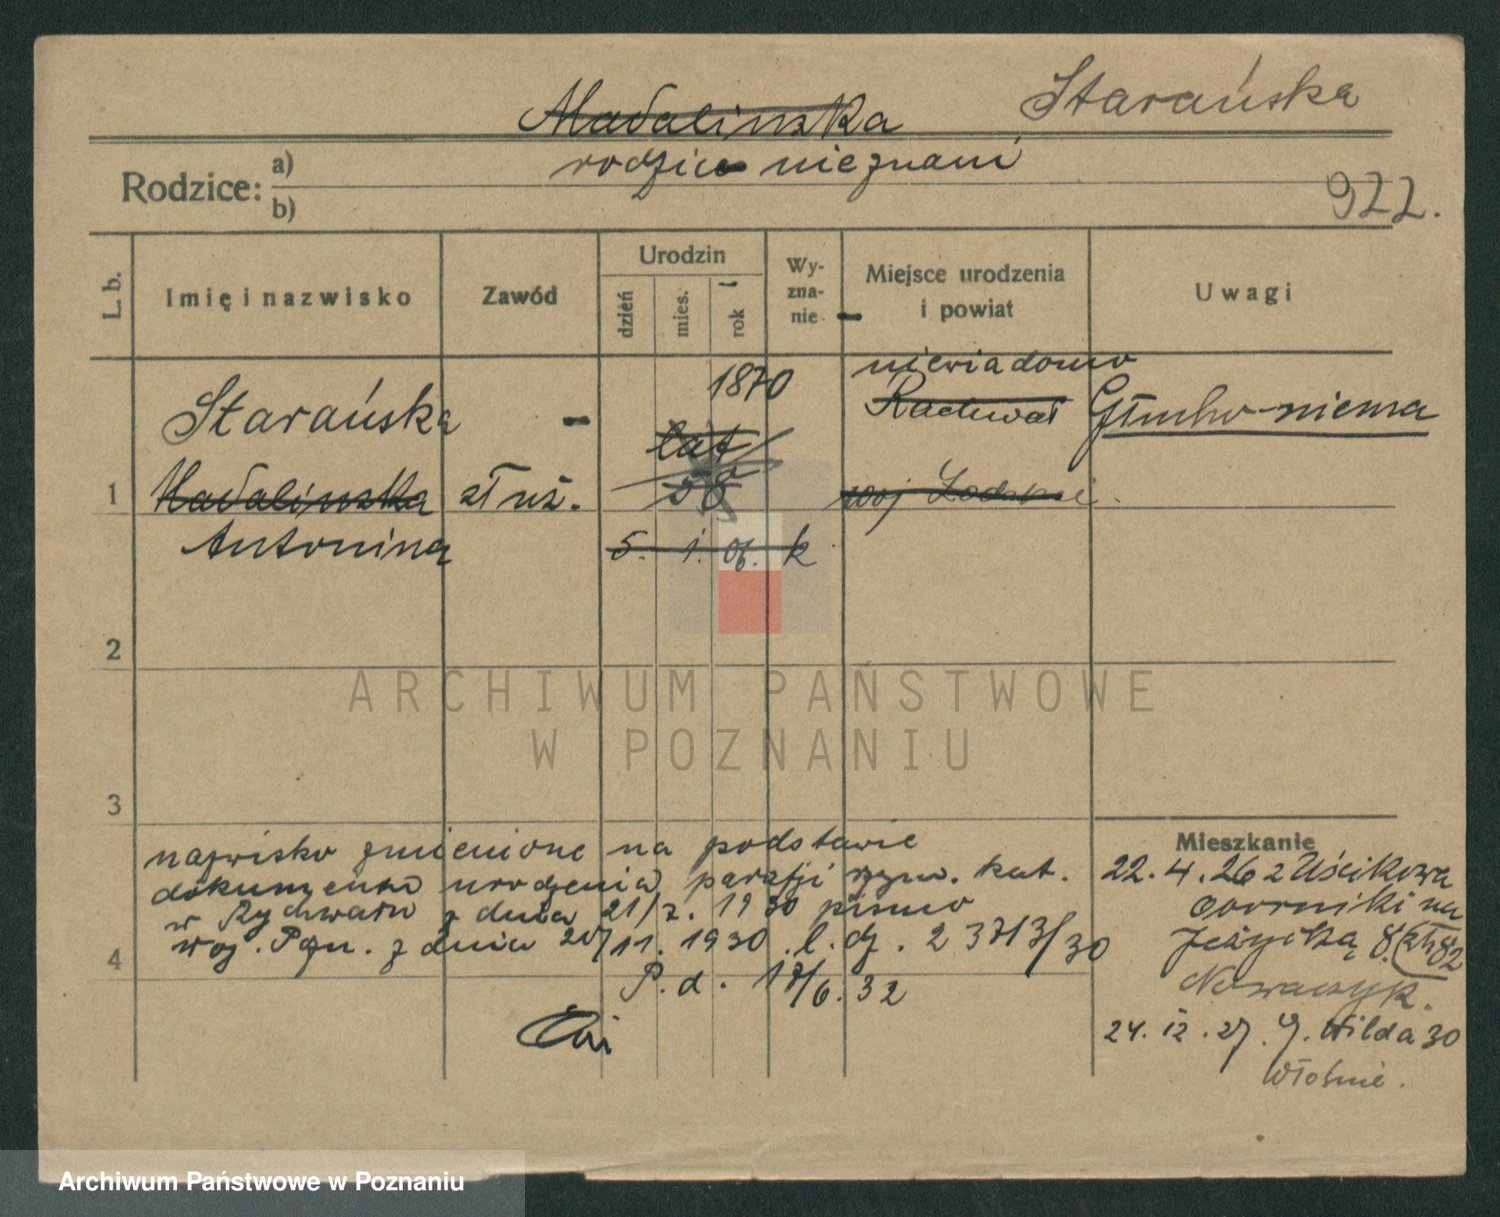 Madalinska Starańska
Rodzice: a) rodzice nieznani
b)
922.
L. b. Imię i nazwisko Zawód Urodzin dzień mies. rok Wyznanie Miejsce urodzenia i powiat Uwagi
1870 niewiadomo
Starańska - Rachwał Głucho-niema
lat
1 Madalinska służ. 58 woj Łodzkie.
Antonina 5. 1. 06. k
2
ARCHIWUM PAŃSTWOWE
W POZNANIU
3
Mieszkanie
nazwisko zmienione na podstawie
dokumentu urodzenia parafji rzym. kat.
w Rychwału z dnia 21/2. 1930 pismo
4 woj. Pozn. z dnia 20/11. 1930 l. dz. 23713/30
P. d. 17/6. 32
22. 4. 26 z Uścikowa
oborniki na
Jeżycką 8.
Nowaczyk.
24. 12. 27. G. Wilda 30
Włośnie.
Archiwum Państwowe w Poznaniu